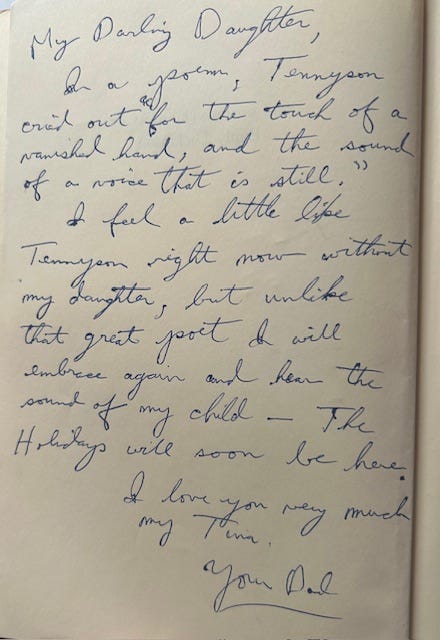 My Darling Daughter,
In a poem, Tennyson
cried out "for the touch of a
vanished hand, and the sound
of a voice that is still."
I feel a little like
Tennyson right now without
my daughter, but unlike
that great poet I will
embrace again and hear the
sound of my child — The
Holidays will soon be here.
I love you very much
my Tina.
Your Dad